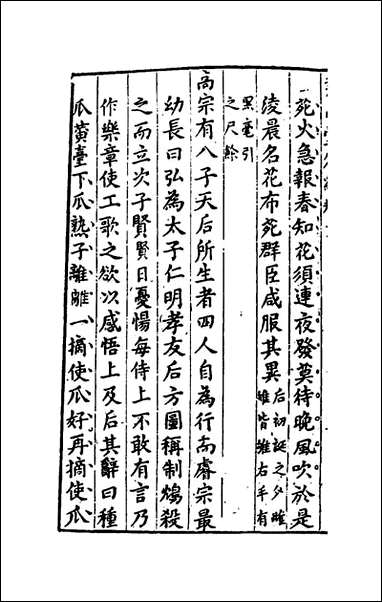 苑火急報春知花須連夜發莫待晚風吹於是
淩晨名花布苑群臣咸服其異
后初誕之夕雌
雉皆雊右手有
黑毫引
之尺餘
高宗有八子天后所生者四人自為行而睿宗最
幼長曰弘為太子仁明孝友后方圖稱制鴆殺
之而立次子賢賢日憂惕每侍上不敢有言乃
作樂章使工歌之欲以感悟上及后其辭曰種
瓜黃臺下瓜熟子離離一摘使瓜好再摘使瓜